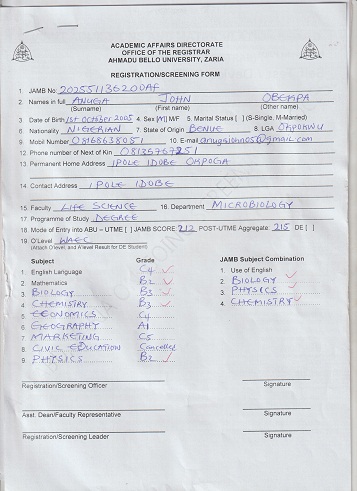 ACADEMIC AFFAIRS DIRECTORATE
OFFICE OF THE REGISTRAR
AHMADU BELLO UNIVERSITY, ZARIA
REGISTRATION/SCREENING FORM
1 JAMB No 202551136200AF
2. Names in full ANUGA JOHN OBEKPA
(Surname) (First name) (Other name)
3 Date of Birth 1st October 2005 4. Sex [M] M/F 5. Marital Status [ ] (S-Single, M-Married)
6 Nationality NIGERIAN 7 State of Origin BENUE 8. LGA OKPOKWU
9. Mobil Number 08168638051 10. E-mail anugajohn05@gmail.com
12 Phone number of Next of Kin 08135767251
13 Permanent Home Address IPOLE IDOBE OKPOGA
14 Contact Address IPOLE IDOBE
15 Faculty LIFE SCIENCE 16. Department MICROBIOLOGY
17 Programme of Study DEGREE
18 Mode of Entry into ABU – UTME [ ] JAMB SCORE 212 POST-UTME Aggregate 215 DE [ ]
19 O'Level WAEC
(Attach O'level, and A'level Result for DE Student)
Subject Grade JAMB Subject Combination
1 English Language C4 1. Use of English
2 Mathematics B2 2 BIOLOGY
3 BIOLOGY B3 3 PHYSICS
4 CHEMISTRY B3 4 CHEMISTRY
5 ECONOMICS C4
6 GEOGRAPHY A1
7 MARKETING C5
8 CIVIC EDUCATION Cancelled
9 PHYSICS B2
Registration/Screening Officer Signature
Asst. Dean/Faculty Representative Signature
Registration/Screening Leader Signature